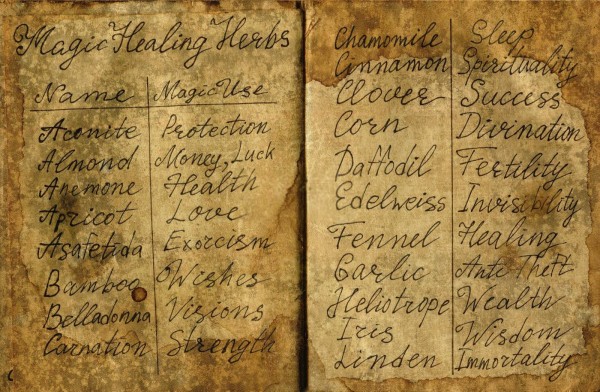 Magic Healing Herbs
Name Magic Use
Aconite Protection
Almond Money, Luck
Anemone Health
Apricot Love
Asafetida Exorcism
Bamboo Wishes
Belladonna Visions
Carnation Strength
Chamomile Sleep
Cinnamon Spirituality
Clover Success
Corn Divination
Daffodil Fertility
Edelweiss Invisibility
Fennel Healing
Garlic Ante Theft
Heliotrope Wealth
Iris Wisdom
Linden Immortality